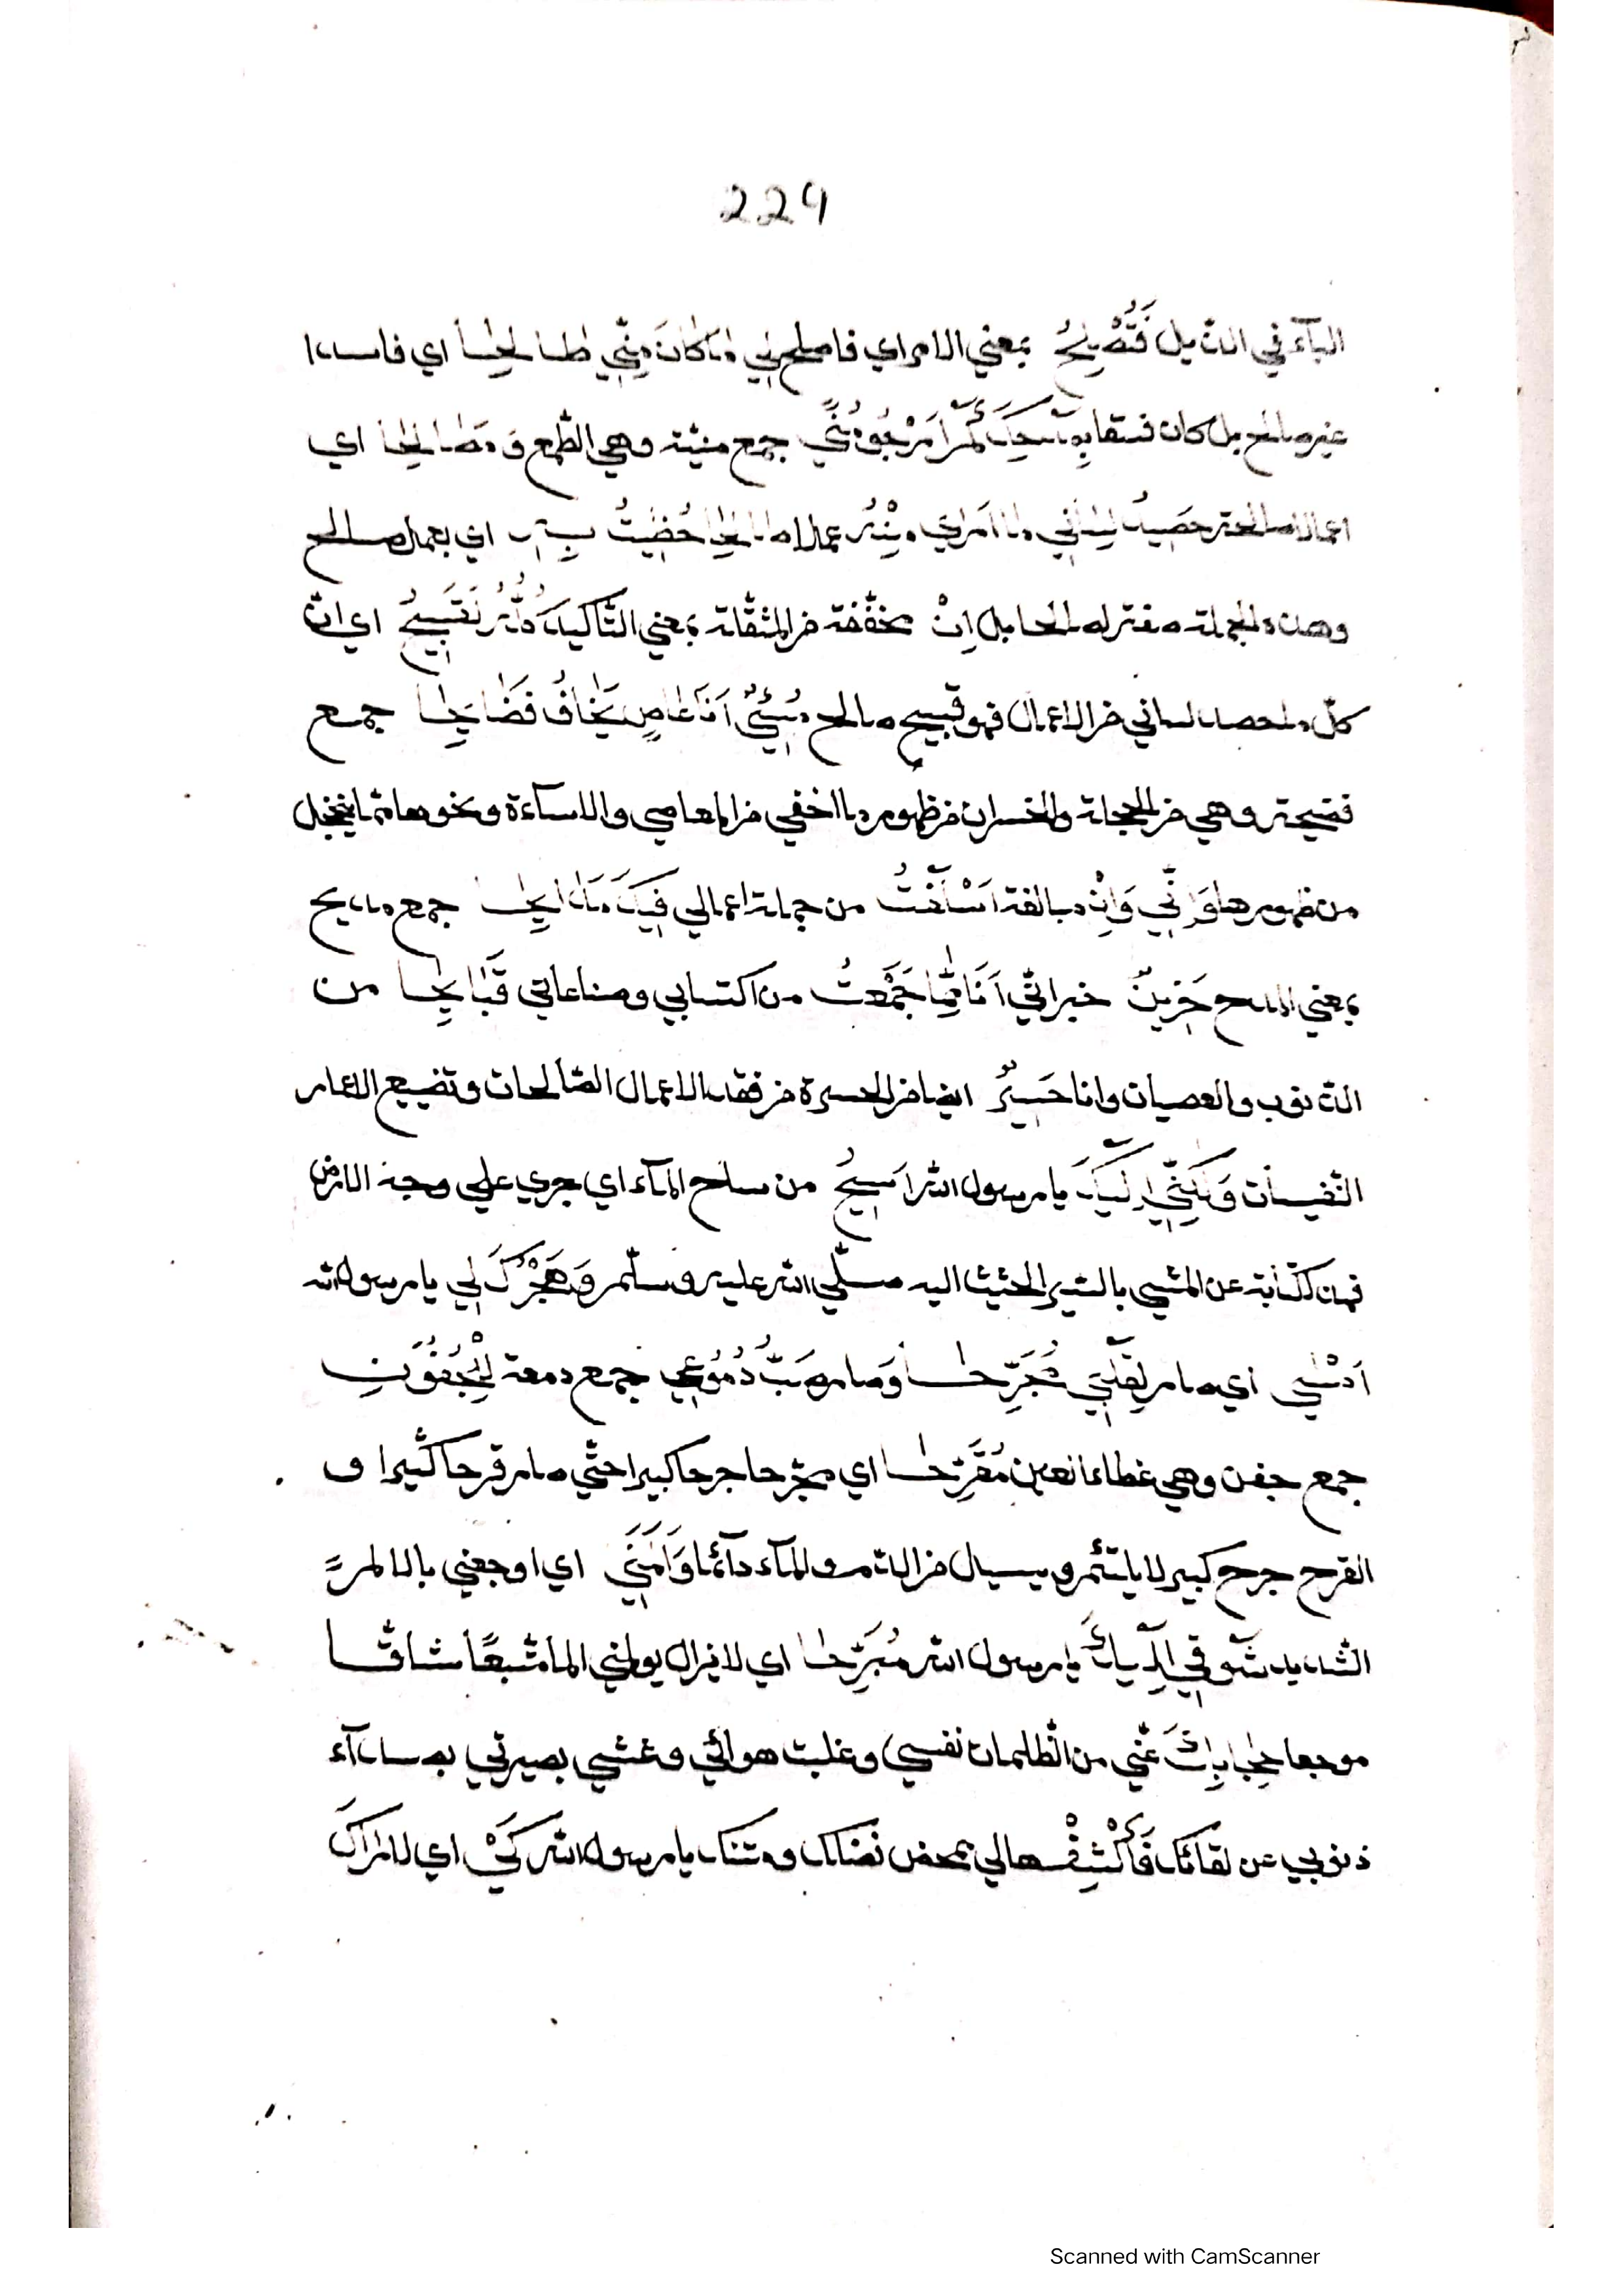 229
الباء في الذيل فَتُصْلِحُ بمعني الامر اي فاصلح لي ما كَانَ مِنِّي طالحا اي فاسدا
غير صالح بل كان فسقا جمع منية وهي الطمع وَمَصَالِحًا اي
اعمالا صالحة حَصِيدُ لِسَانِي عملا صالحا حُظِيتُ بِهِ اي بعمل صالح
وهذه الجملة صفة له الحاصل اِنْ مخففة من المثقلة بمعني التاكيد قَبِيحُ اي انّ
كلّ ما حصد لساني من الاعمال فهو قبيح صالح مُسِيْءٌ اَنَا عَاصٍ يَخَافُ فَضَايِحًا جمع
فضيحة وهي من الخجلة والخسران من ظهور ما اخفي من المعاصي والاساءة ونحوها مما يخجل
من ظهورها وَاِنِّي وَاِنْ مبالغة اَسْلَفْتُ من جملة اعمالي فِيكَ مَدَايِحًا جمع مديح
بمعني المدح حَزِينٌ خبر اني اَنَا مِمَّا جَمَعْتُ من اكتسابي وصناعاتي قَبَايِحًا من
الذنوب والعصيان وانا حَسِيْرٌ ايضا من الحسرة من فقد الاعمال الصّالحات وتضييع الاعمار
النّفيسات وَلَكِنِّي اِلَيْكَ يا رسول الله اَسِيحُ من ساح الماء اي جري علي وجه الارض
فهذه كناية عن المشي بالسّير الحثيث اليه صلّي الله عليه وسلّم وَهَجْرُكَ لِي يا رسول الله
اَدْمَي اي صار لِقَلْبِي مُجَرِّحًا وَصار صَبُّ دُمُوعِي جمع دمعة لِلْجُفُوْنِ
جمع جفن وهي غطاء العين مُقَرِّحًا اي مجرّحا جرحا كبيرا حتّي صار قرحا كثيرا و
القرح جرح كبير لا يلتئم ويسيل من الدم والماء دآئما وَاَلَمَنِي اي اوجعني بالالم
الشديد شَوْقِي اِلَيْكَ يا رسول الله مُبَرِّحًا اي لا يزال يولمني الما متبعًا شاقّا
موجعا حِجَابِكَ عَنِّي من الظلمات نفسي وغلبة هوائي وغشي بصيرتي بصداء
ذنوبي عن لقائك فَاكْشِفْها لي بمحض فضلك ومنك يا رسول الله كَيْ اي لاراكَ
Scanned with CamScanner